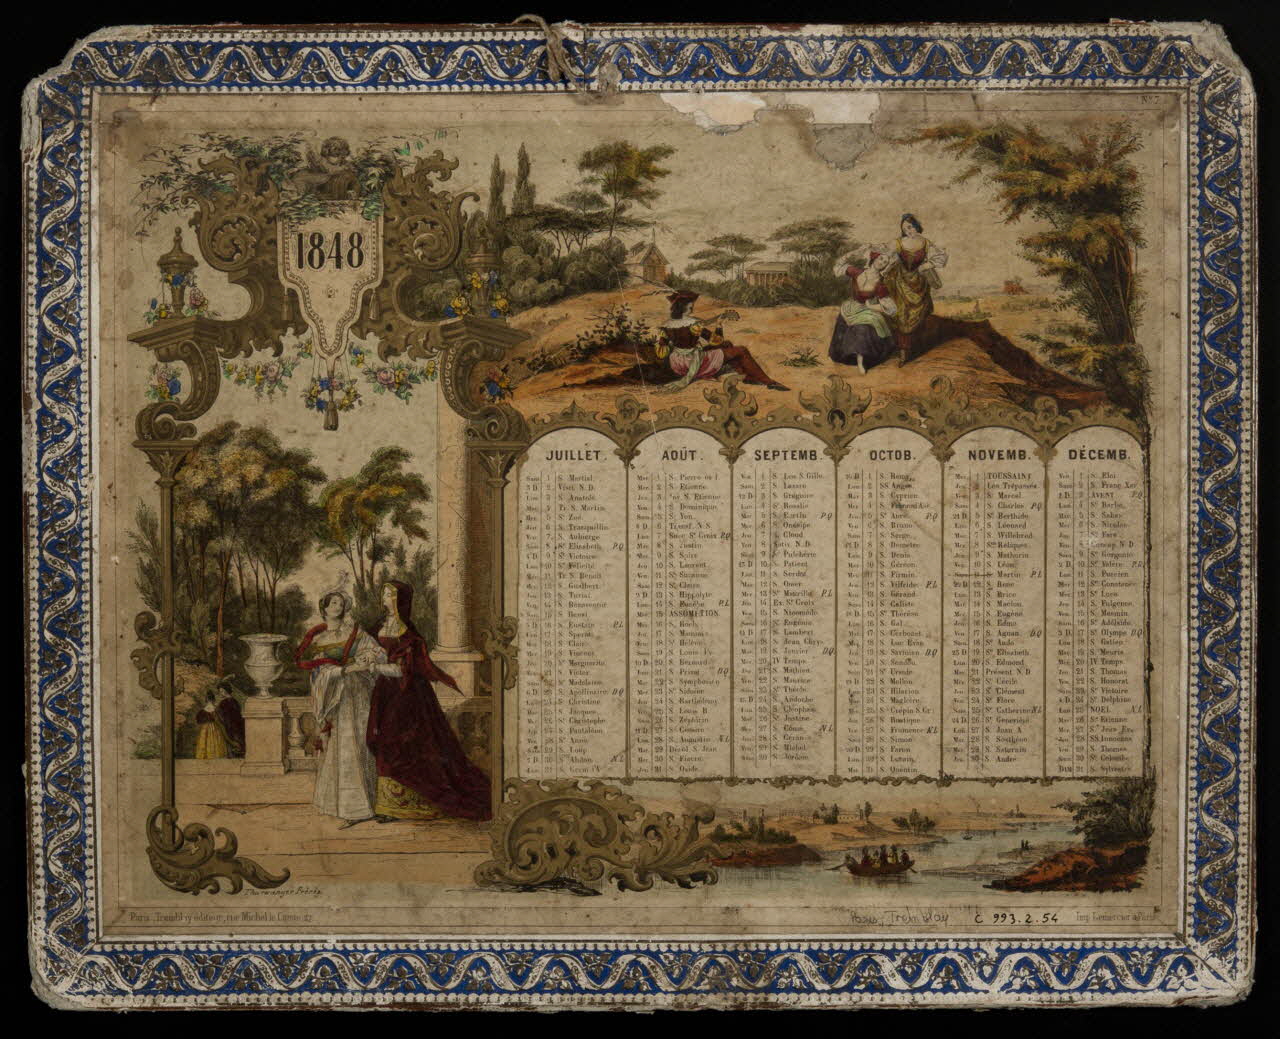 No. 7
1848
JUILLET.
Sam 1 S. Martial.
3 D 2 Visit. N.D.
Lun 3 S. Anatole
Mar 4 Tr. S. Martin
Mer 5 Ste Zoé
Jeu 6 S. Tranquillin
Ven 7 S. Aubierge
Sam 8 Ste Elisabeth P.Q
4 D 9 Ste Victoire
Lun 10 Ste Félicité
Mar 11 Tr. S. Benoit
Mer 12 S. Gualbert
Jeu 13 S. Turiaf
Ven 14 S. Bonaventure
Sam 15 S. Henri
5 D 16 S. Eustate P.L
Lun 17 S. Spérat
Mar 18 S. Clair
Mer 19 S. Vincent
Jeu 20 Ste Marguerite
Ven 21 S. Victor
Sam 22 Ste Madeleine
6 D 23 S. Apollinaire D.Q
Lun 24 Ste Christine
Mar 25 S. Jacques
Mer 26 S. Christophe
Jeu 27 S. Pantaléon
Ven 28 Ste Anne
Sam 29 S. Loup
7 D 30 S. Abdon N.L
Lun 31 S. Germ l'A
AOÛT.
Mar 1 S. Pierre ès l
Mer 2 S. Etienne
Jeu 3 Inv S. Etienne
Ven 4 S. Dominique
Sam 5 S. Yon
8 D 6 Transf. N.S
Lun 7 Susc Ste Croix P.Q
Mar 8 S. Justin
Mer 9 S. Spire
Jeu 10 S. Laurent
Ven 11 Ste Suzanne
Sam 12 Ste Claire
9 D 13 S. Hippolyte
Lun 14 S. Eusèbe P.L
Mar 15 ASSOMPTION
Mer 16 S. Roch
Jeu 17 S. Mammès
Ven 18 Ste Hélène
Sam 19 S. Louis Ev
10 D 20 S. Bernard
Lun 21 S. Privat D.Q
Mar 22 S. Symphorien
Mer 23 S. Sidoine
Jeu 24 S. Barthélemy
Ven 25 S. Louis R
Sam 26 S. Zéphirin
11 D 27 S. Césaire
Lun 28 S. Augustin N.L
Mar 29 Décol S. Jean
Mer 30 S. Fiacre
Jeu 31 S. Ovide
SEPTEMB.
Ven 1 S. Leu S. Gille
Sam 2 S. Lazare
12 D 3 S. Grégoire
Lun 4 Ste Rosalie
Mar 5 S. Bertin P.Q
Mer 6 S. Onésipe
Jeu 7 S. Cloud
Ven 8 Nativ. N.D
Sam 9 Ste Pulchérie
13 D 10 S. Patient
Lun 11 S. Serdot
Mar 12 S. Omer
Mer 13 S. Maurille P.L
Jeu 14 Ex. Ste Croix
Ven 15 S. Nicomède
Sam 16 Ste Eugénie
14 D 17 S. Lambert
Lun 18 S. Jean Chrys
Mar 19 S. Janvier D.Q
Mer 20 IV Temps.
Jeu 21 S. Mathieu
Ven 22 S. Maurice
Sam 23 Ste Thècle
15 D 24 S. Andoche
Lun 25 S. Cléophas
Mar 26 Ste Justine
Mer 27 S. Côme N.L
Jeu 28 S. Céran
Ven 29 S. Michel
Sam 30 S. Jérôme
OCTOB.
16 D 1 S. Remy
Lun 2 SS. Anges
Mar 3 S. Cyprien
Mer 4 S. Franc d'Ass
Jeu 5 Ste Aure P.Q
Ven 6 S. Bruno
Sam 7 S. Serge
17 D 8 S. Demetre
Lun 9 S. Denis
Mar 10 S. Géréon
Mer 11 S. Firmin
Jeu 12 S. Vilfride P.L
Ven 13 S. Gérand
Sam 14 S. Caliste
18 D 15 Ste Thérèse
Lun 16 S. Gal
Mar 17 S. Cerbonet
Mer 18 S. Luc Evan
Jeu 19 S. Savinien D.Q
Ven 20 S. Sendou
Sam 21 Ste Ursule
19 D 22 S. Mellon
Lun 23 S. Hilarion
Mar 24 S. Magloire
Mer 25 S. Crépin S. Cr
Jeu 26 S. Rustique
Ven 27 S. Frumence N.L
Sam 28 S. Simon
20 D 29 S. Faron
Lun 30 S. Lucain
Mar 31 S. Quentin
NOVEMB.
Mer 1 TOUSSAINT
Jeu 2 Les Trépassés
Ven 3 S. Marcel
Sam 4 S. Charles P.Q
21 D 5 Ste Berthilde
Lun 6 S. Léonard
Mar 7 S. Willebrod
Mer 8 Stes Reliques
Jeu 9 S. Mathurin
Ven 10 S. Léon
Sam 11 S. Martin P.L
22 D 12 S. René
Lun 13 S. Brice
Mar 14 S. Maclou
Mer 15 S. Eugène
Jeu 16 S. Edme
Ven 17 S. Agnan D.Q
Sam 18 Ste Aude
23 D 19 Ste Elisabeth
Lun 20 S. Edmond
Mar 21 Présent N.D
Mer 22 Ste Cécile
Jeu 23 S. Clément
Ven 24 Ste Flore
Sam 25 Ste Catherine N.L
24 D 26 Ste Geneviève
Lun 27 S. Jean A
Mar 28 S. Sosthène
Mer 29 S. Saturnin
Jeu 30 S. André
DÉCEMB.
Ven 1 S. Eloi
Sam 2 S. Franç Xav
2 D 3 AVENT P.Q
Lun 4 Ste Barbe
Mar 5 S. Sabas
Mer 6 S. Nicolas
Jeu 7 Ste Fare
Ven 8 Concep. N.D
Sam 9 Ste Gorgonie
2 D 10 Ste Valère P.L
Lun 11 S. Fuscien
Mar 12 Ste Constance
Mer 13 Ste Luce
Jeu 14 S. Fulgence
Ven 15 S. Mesmin
Sam 16 Ste Adélaïde
3 D 17 Ste Olympe D.Q
Lun 18 S. Gatien
Mar 19 S. Meuris
Mer 20 IV Temps
Jeu 21 S. Thomas
Ven 22 S. Honorat
Sam 23 Ste Victoire
4 D 24 Ste Delphine
Lun 25 NOEL N.L
Mar 26 S. Etienne
Mer 27 S. Jean Ev.
Jeu 28 SS. Innocens
Ven 29 S. Thomas
Sam 30 Ste Colombe
DIM 31 S. Sylvestre
Thurwanger Frères
Paris, Tremblay éditeur, rue Michel le Comte, 27
Paris, Tremblay
C 993.2.54
Imp. Lemercier à Paris